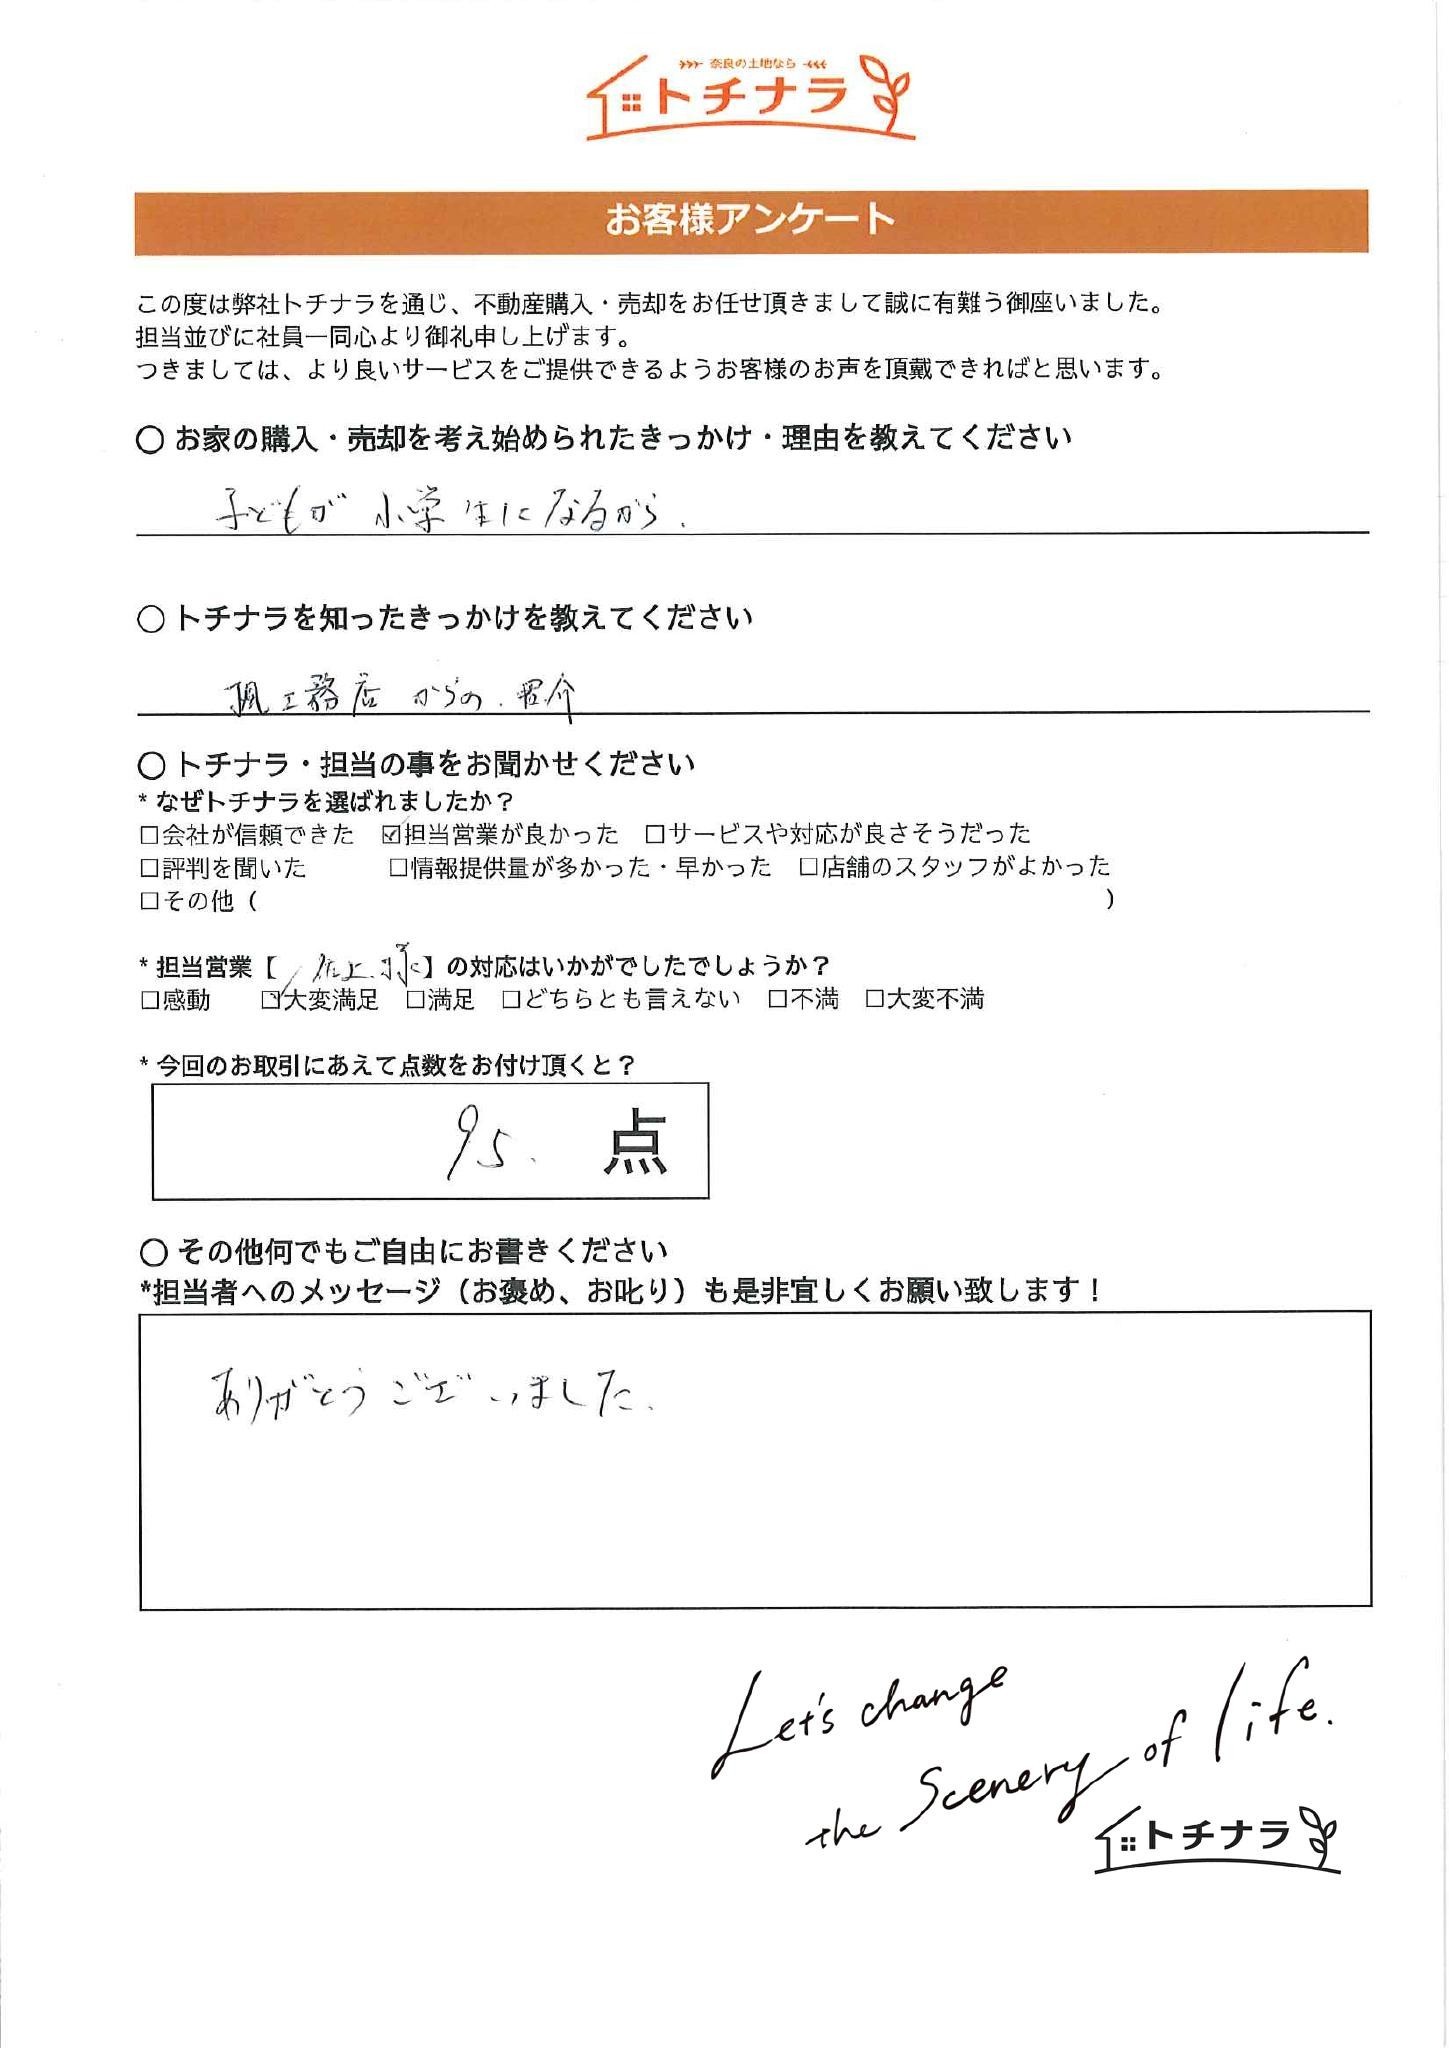 奈良の土地なら
トチナラ
お客様アンケート
この度は弊社トチナラを通じ、不動産購入・売却をお任せ頂きまして誠に有難う御座いました。
担当並びに社員一同心より御礼申し上げます。
つきましては、より良いサービスをご提供できるようお客様のお声を頂戴できればと思います。
○ お家の購入・売却を考え始められたきっかけ・理由を教えてください
子どもが 小学生になるから.
○ トチナラを知ったきっかけを教えてください
工務店 からの 紹介
○ トチナラ・担当の事をお聞かせください
* なぜトチナラを選ばれましたか？
□会社が信頼できた ☑担当営業が良かった □サービスや対応が良さそうだった
□評判を聞いた □情報提供量が多かった・早かった □店舗のスタッフがよかった
□その他（ ）
* 担当営業【 様】の対応はいかがでしたでしょうか？
□感動 ☑大変満足 □満足 □どちらとも言えない □不満 □大変不満
* 今回のお取引にあえて点数をお付け頂くと？
95. 点
○ その他何でもご自由にお書きください
*担当者へのメッセージ（お褒め、お叱り）も是非宜しくお願い致します！
ありがとうございました.
Let's change
the Scenery of life.
トチナラ